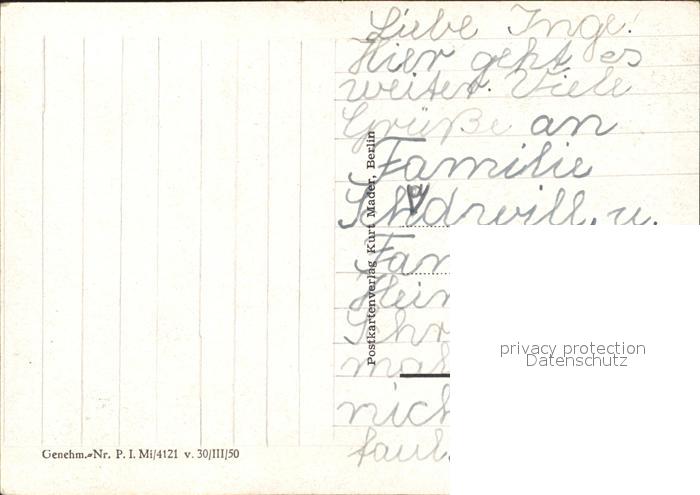 Liebe Inge!
Hier geht es
weiter. Viele
Grüße an
Familie
u.
Fam
Hein
Schr
mal
nich
faul.
Postkartenverlag Kurt Mader, Berlin
Genehm.-Nr. P. I. Mi/4121 v. 30/III/50
privacy protection
Datenschutz